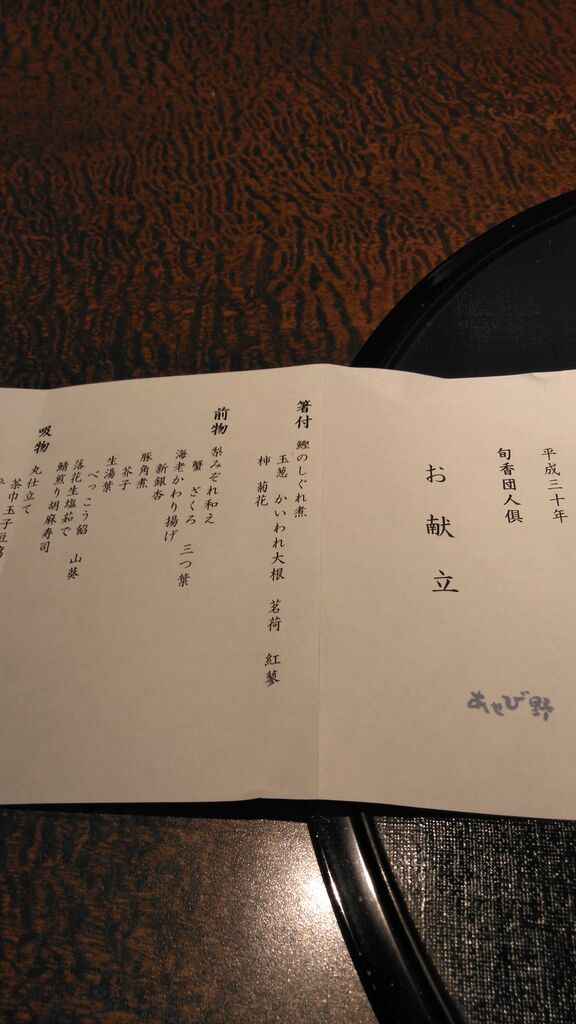 平成三十年
旬香団人倶
お献立
あせび野
箸付
鰹のしぐれ煮
玉葱 かいわれ大根 茗荷 紅蓼
柿 菊花
前物
梨みぞれ和え
蟹 ざくろ 三つ葉
海老かわり揚げ
新銀杏
豚角煮
芥子
生湯葉
べっこう餡 山葵
落花生塩茹で
鯖煎り胡麻寿司
吸物
丸仕立て
茶巾玉子豆腐